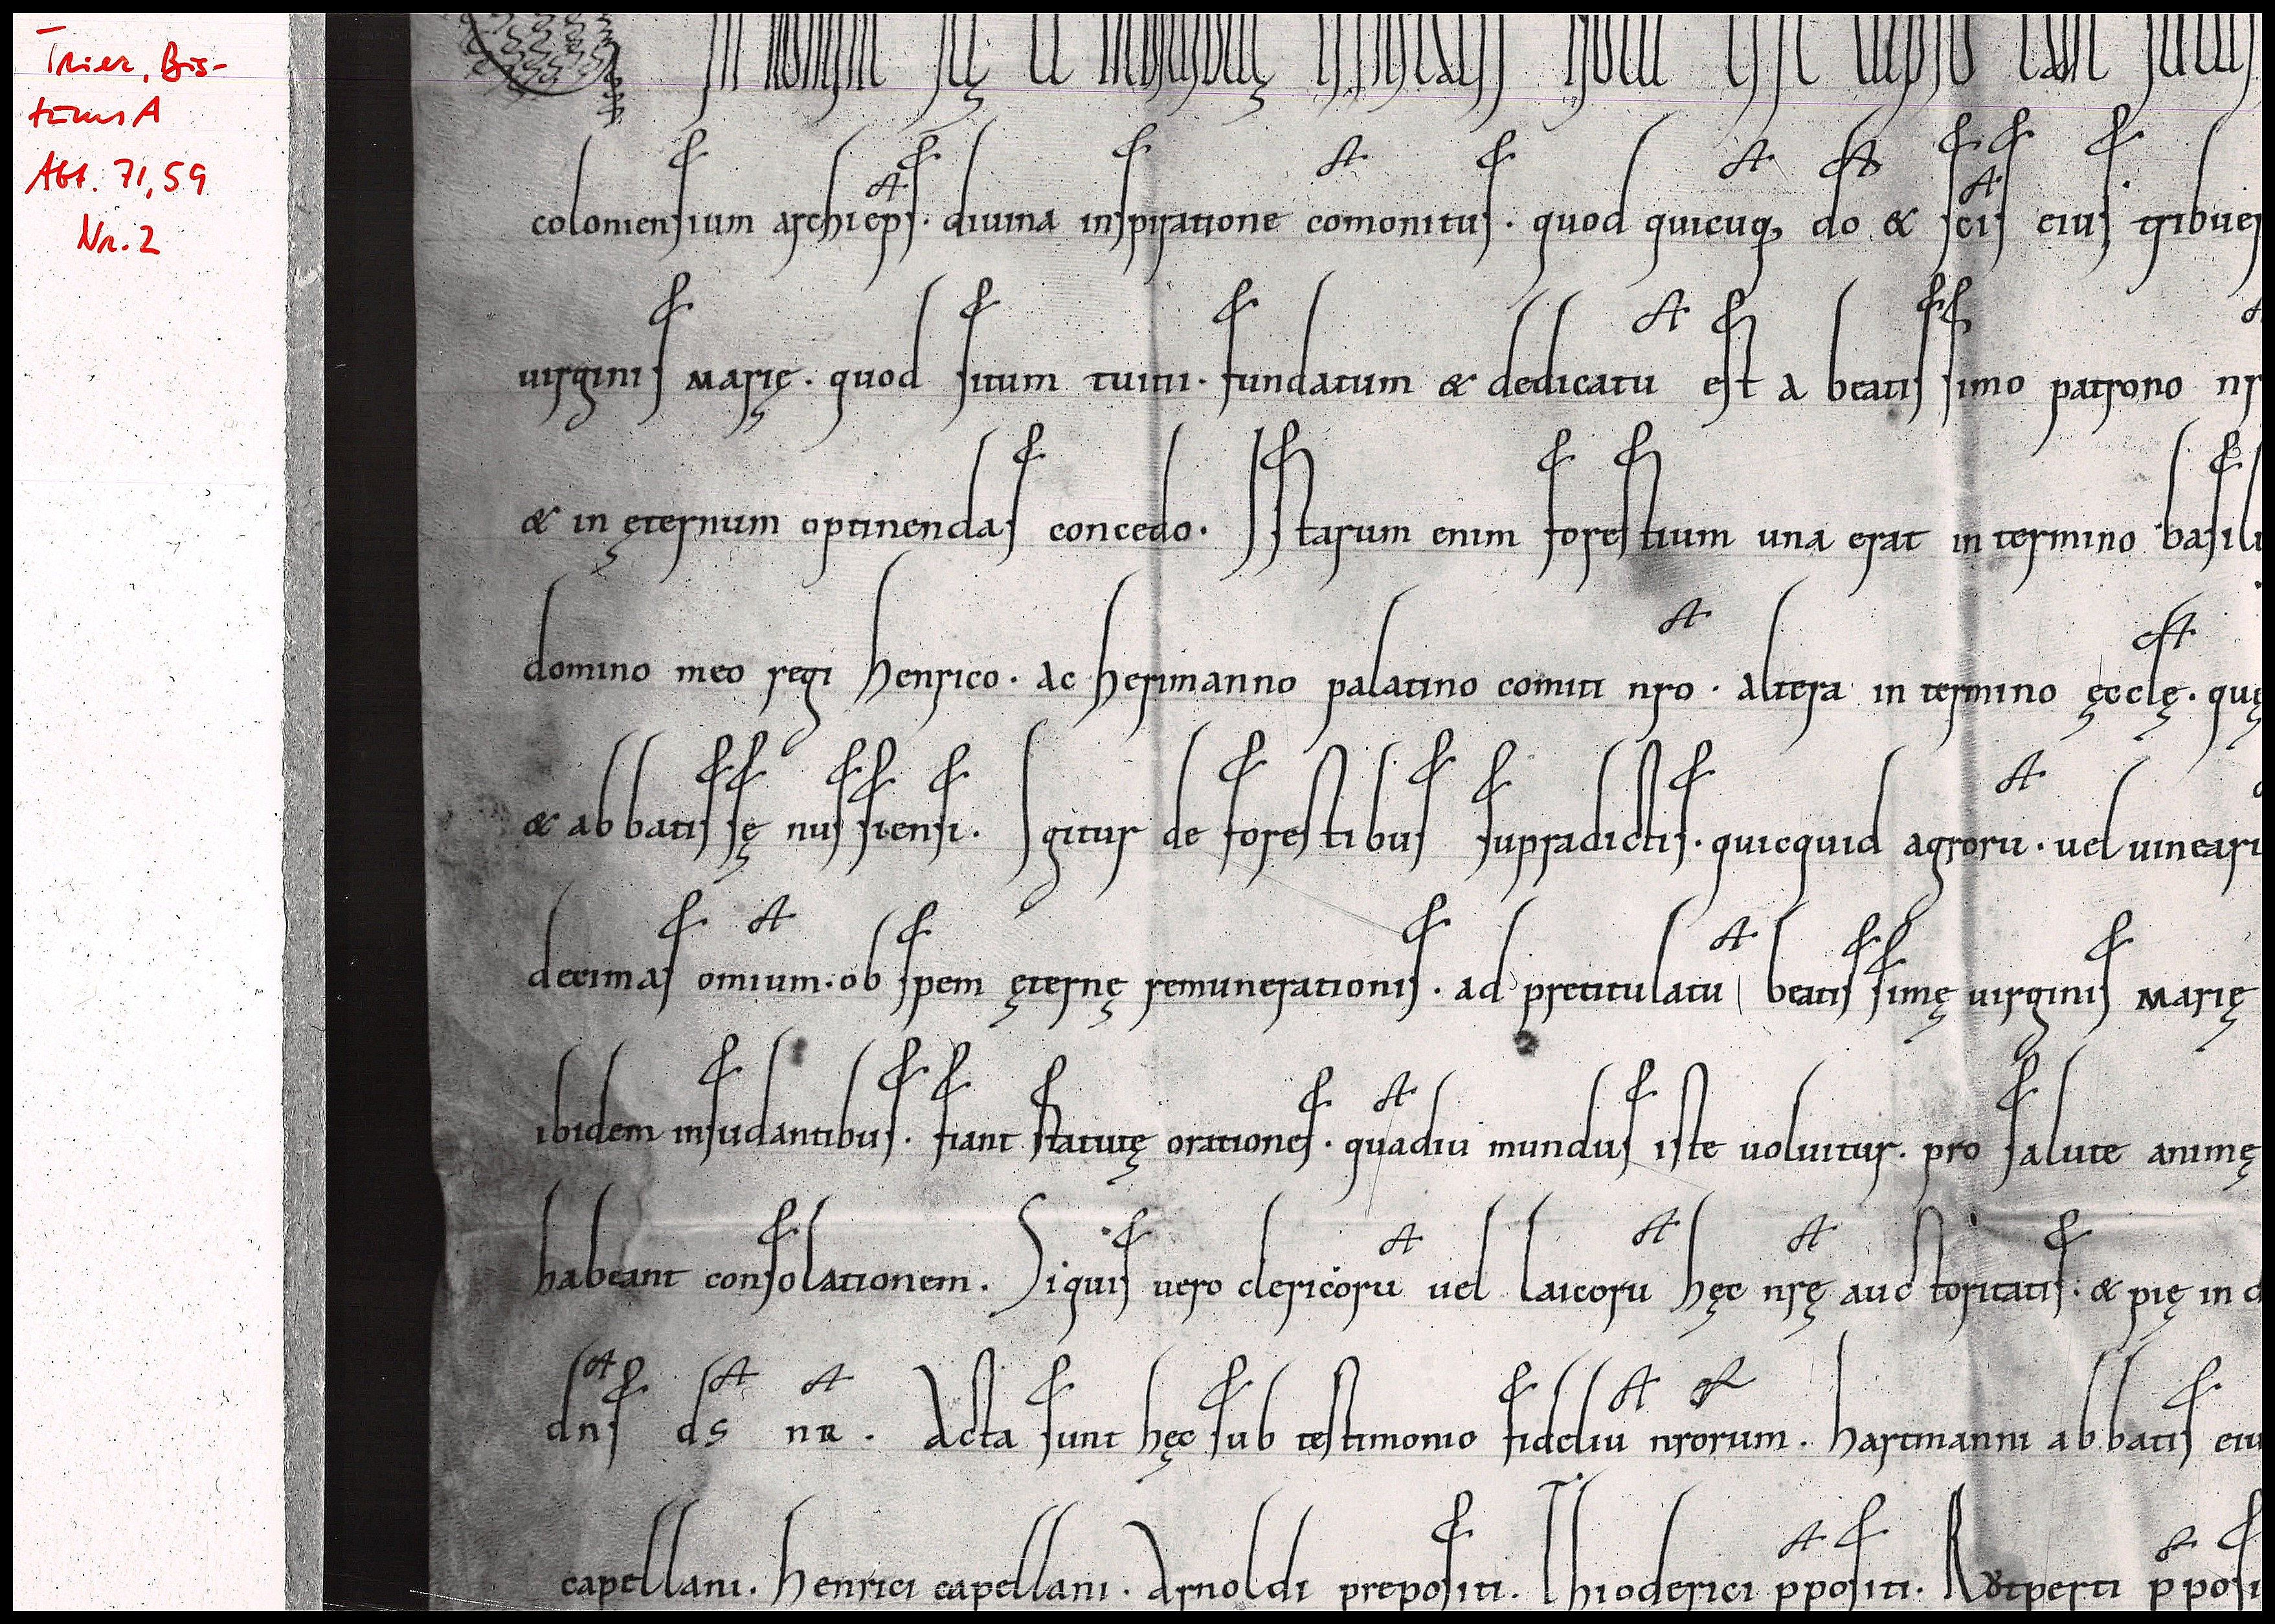 Trier, Bis-
tumsA
Abt. 71,59
Nr. 2
In nomine scę et indiuiduę trinitatis Notum esse cupio tam futuris
coloniensium archieps̄. diuina inspiratione cōmonitus. quod quicūq; dō & scīs eius tribuer
uirginis Marię. quod situm tuitii. fundatum & dedicatū est a beatissimo patrono nr
& in ęternum optinendas concedo. Istarum enim forestium una erat in termino basili
domino meo regi henrico. ac herimanno palatino comiti nr̄o. altera in termino ęcclę. quę
& abbatissę nussiensi. Igitur de forestibus supradictis. quicquid agrorū. uel uinearū
decimas om̄ium. ob spem ęternę remunerationis. ad pretitulatū beatissimę uirginis Marię
ibidem insudantibus. fiant statutę orationes. quādiu mundus iste uoluitur. pro salute animę
habeant consolationem. Siquis uero clericorū uel laicorū hęc nr̄ę auctoritatis. & pię in d
dn̄s ds̄ nr̄. Acta sunt hęc sub testimonio fideliū nr̄orum. hartmanni abbatis eiu
capellani. henrici capellani. Arnoldi prepositi. Thioderici p̄positi. Rǒtperti p̄posi